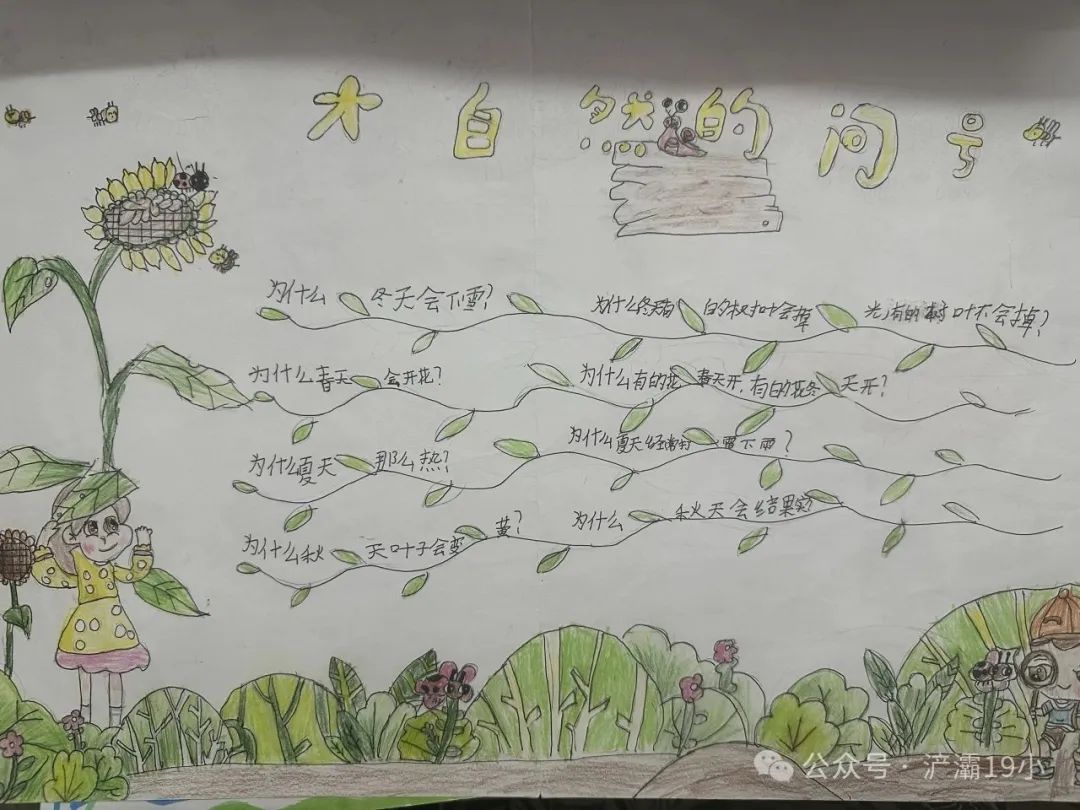 大自然的问号
为什么冬天会下雪?
为什么冬天有的树叶会掉,有的树叶不会掉?
为什么春天会开花?
为什么有的花春天开,有的花冬天开?
为什么夏天那么热?
为什么夏天经常打雷下雨?
为什么秋天叶子会变黄?
为什么秋天会结果实
公众号·浐灞19小